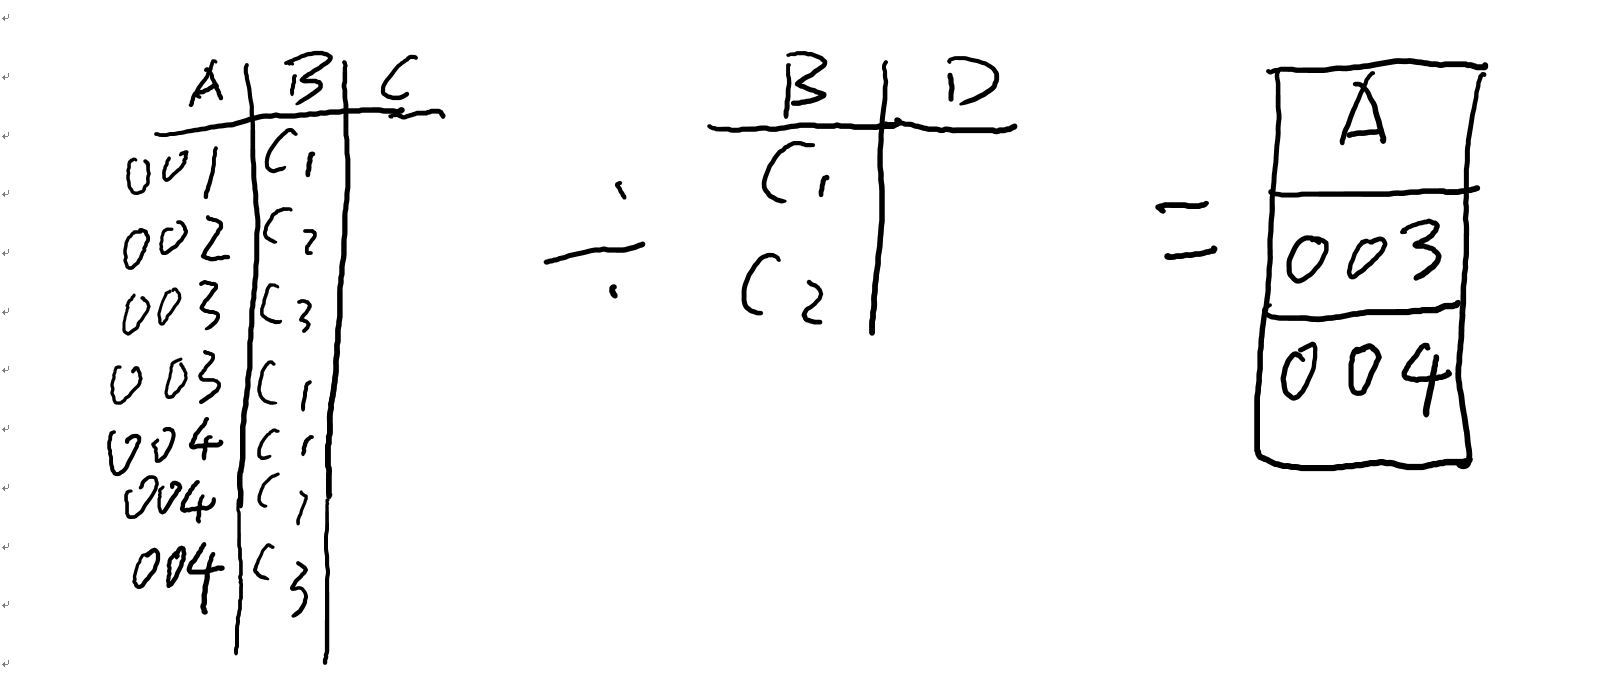 A B C
001 C1
002 C2
003 C3
003 C1
004 C1
004
004 C3
÷
B D
C1
C2
=
A
003
004